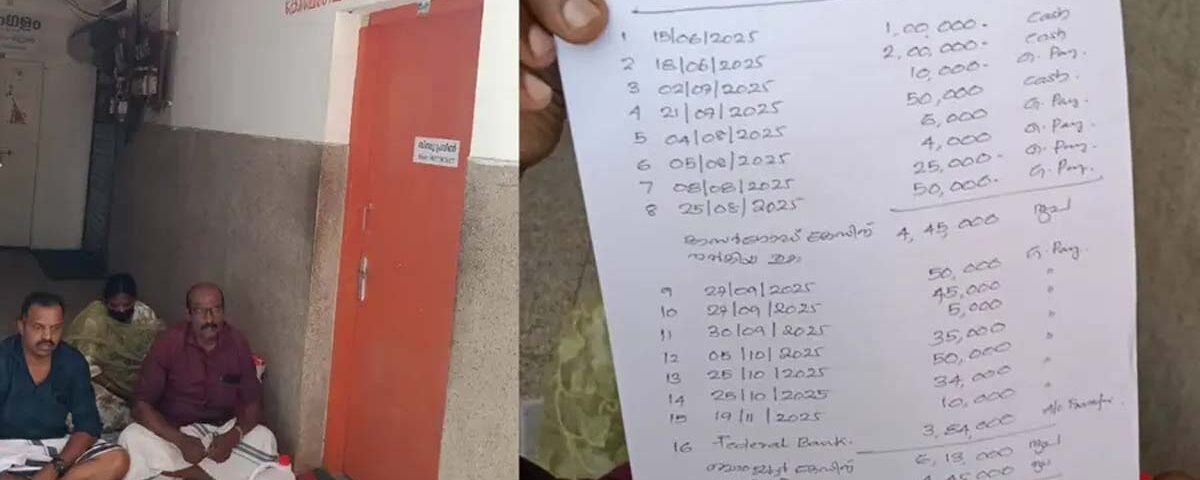 1 15/06/2025 1,00,000- Cash
2 18/06/2025 2,00,000- Cash
3 02/07/2025 10,000- G. Pay
4 21/07/2025 50,000 Cash.
5 04/08/2025 6,000 G. Pay
6 05/08/2025 4,000 G. Pay.
7 08/08/2025 25,000- G. Pay.
8 25/08/2025 50,000- G. Pay.
കാസർഗോഡ് കേസിന് 4,45,000 രൂപ
നൽകിയ തുക
9 27/09/2025 50,000 G. Pay.
10 27/09/2025 45,000 "
11 30/09/2025 5,000 "
12 05/10/2025 35,000 "
13 25/10/2025 50,000 "
14 25/10/2025 34,000 "
15 19/11/2025 10,000 "
16 Federal Bank. 3,84,000 A/c Transfer.
കേസിന് 6,13,000 രൂപ
4,45,000 രൂപ